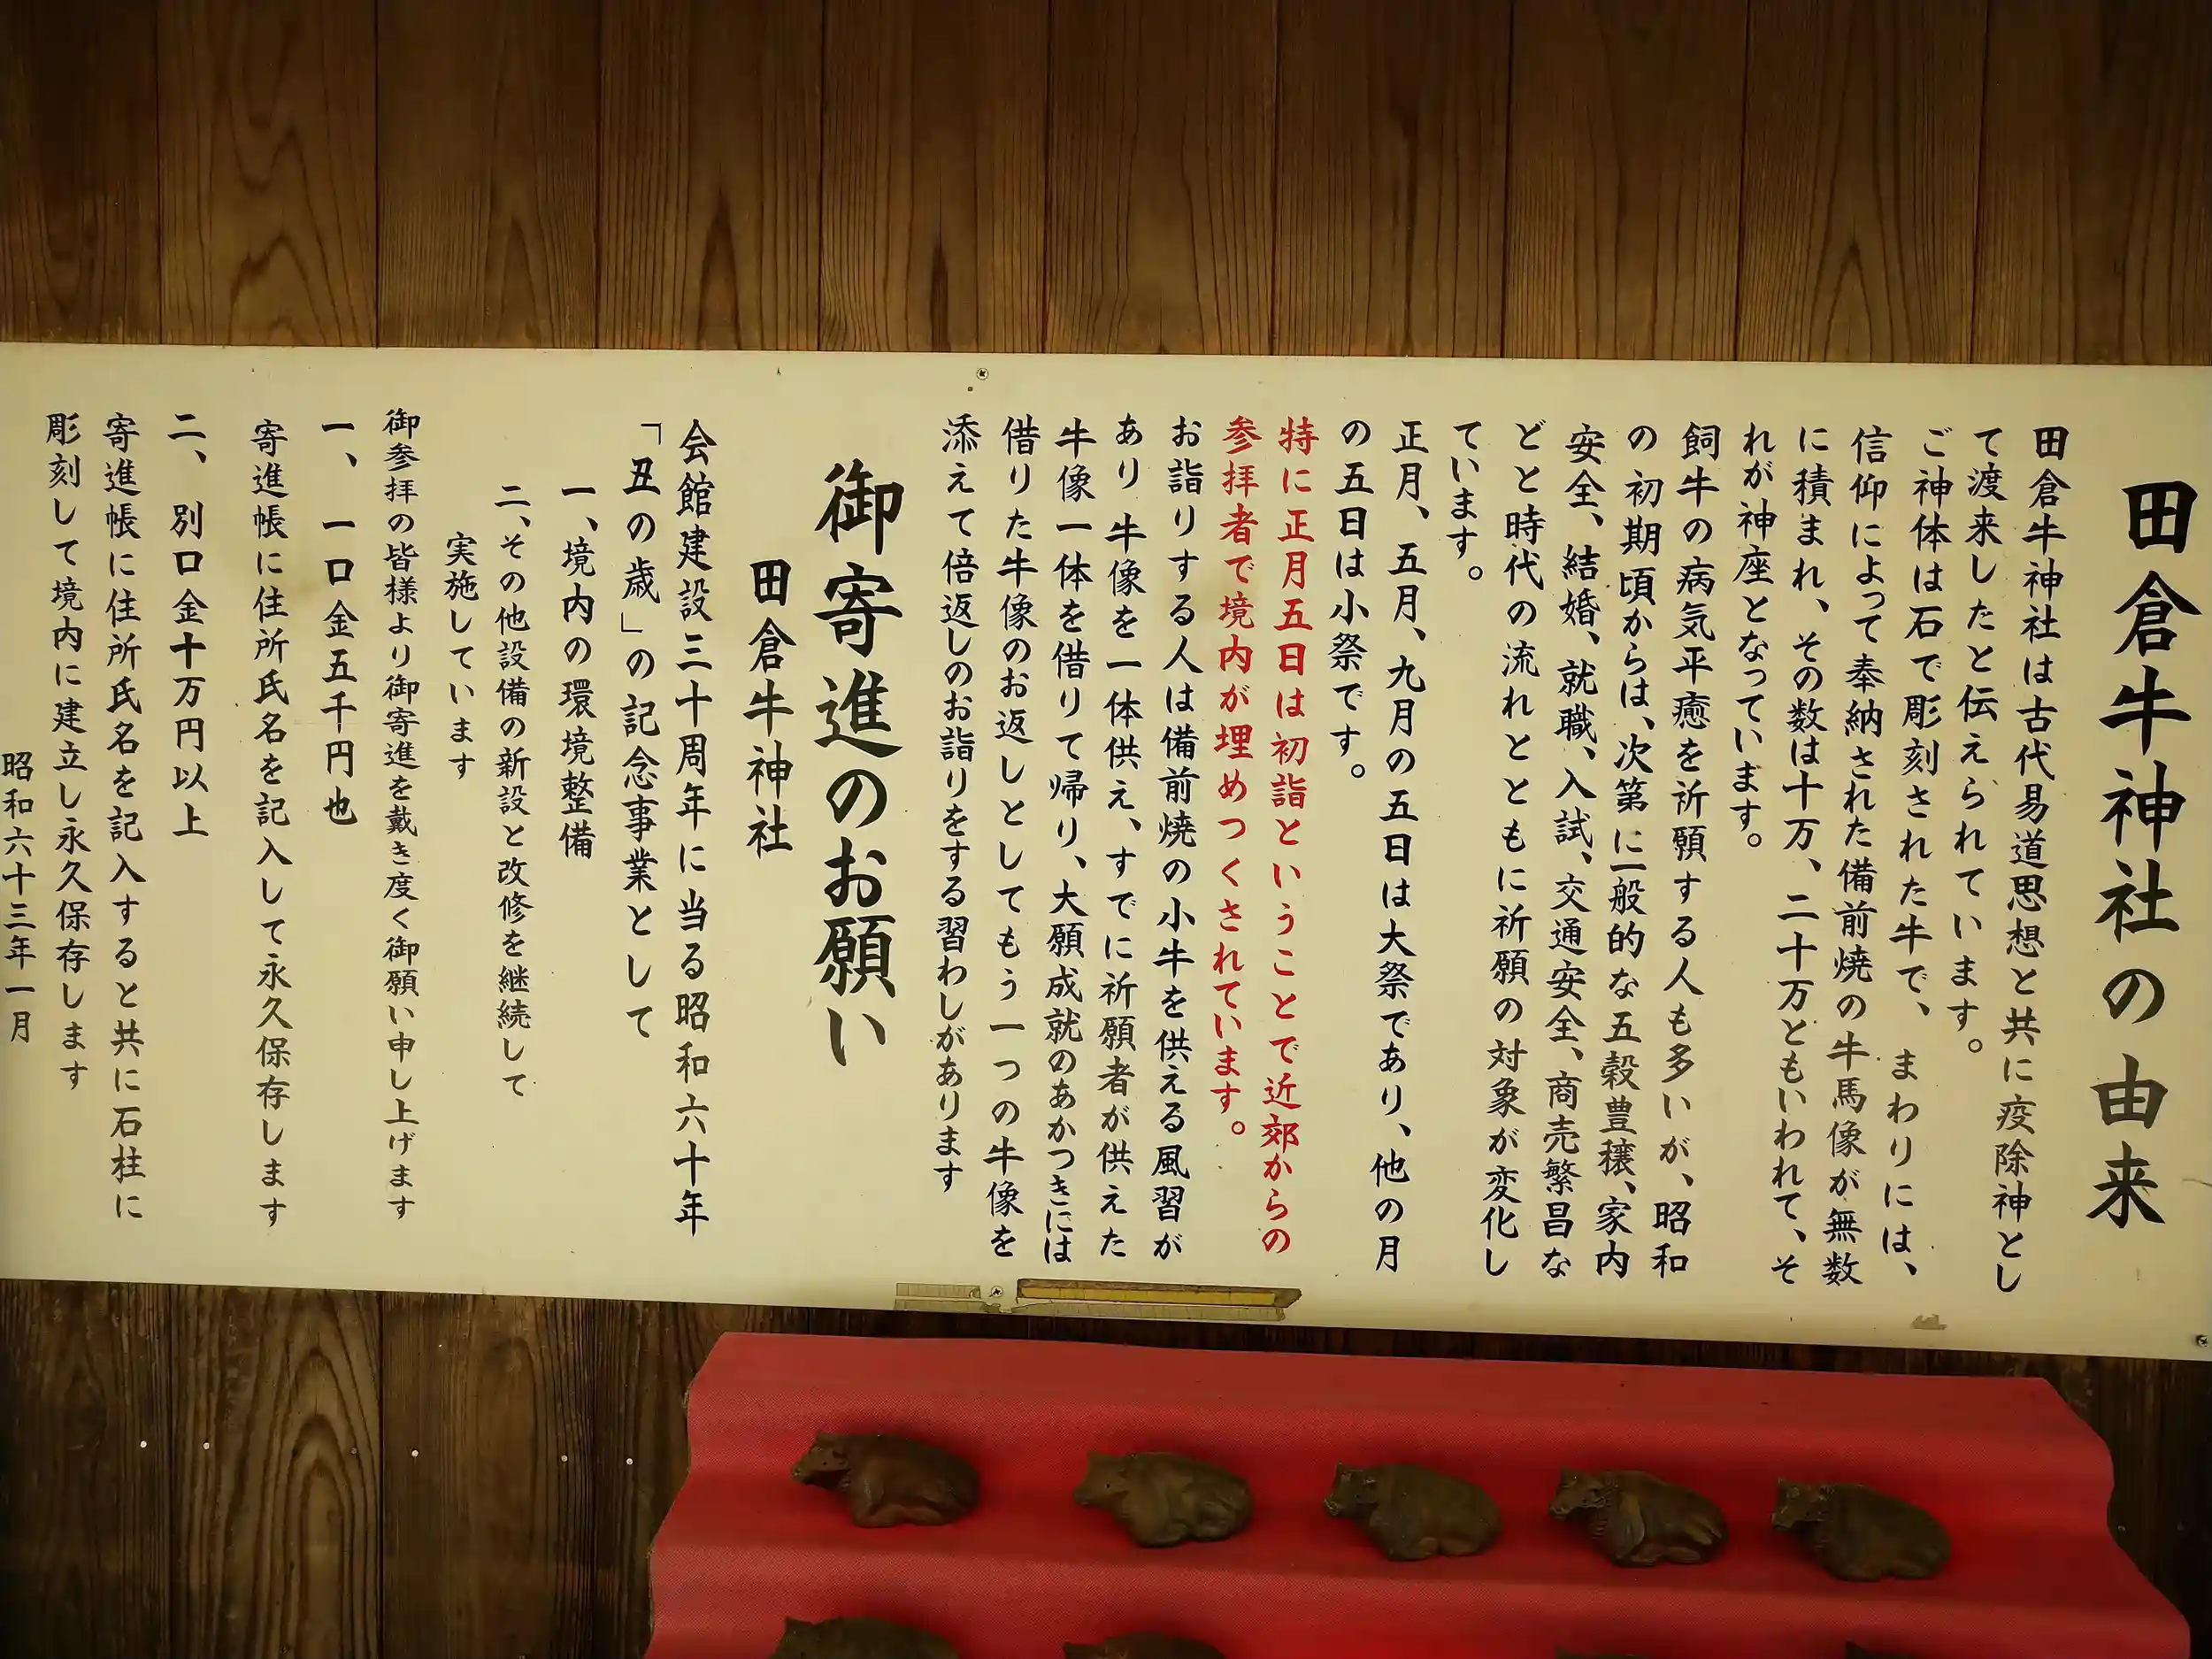 田倉牛神社の由来
田倉牛神社は古代易道思想と共に疫除神とし
て渡来したと伝えられています。
ご神体は石で彫刻された牛で、まわりには、
信仰によって奉納された備前焼の牛馬像が無数
に積まれ、その数は十万、二十万ともいわれて、そ
れが神座となっています。
飼牛の病気平癒を祈願する人も多いが、昭和
の初期頃からは、次第に一般的な五穀豊穣、家内
安全、結婚、就職、入試、交通安全、商売繁昌な
どと時代の流れとともに祈願の対象が変化し
ています。
正月、五月、九月の五日は大祭であり、他の月
の五日は小祭です。
特に正月五日は初詣ということで近郊からの
参拝者で境内が埋めつくされています。
お詣りする人は備前焼の小牛を供える風習が
あり牛像を一体供え、すでに祈願者が供えた
牛像一体を借りて帰り、大願成就のあかつきには
借りた牛像のお返しとしてもう一つの牛像を
添えて倍返しのお詣りをする習わしがあります
御寄進のお願い
田倉牛神社
会館建設三十周年に当る昭和六十年
「丑の歳」の記念事業として
一、境内の環境整備
二、その他設備の新設と改修を継続して
実施しています
御参拝の皆様より御寄進を戴き度く御願い申し上げます
一、一口金五千円也
寄進帳に住所氏名を記入して永久保存します
二、別口金十万円以上
寄進帳に住所氏名を記入すると共に石柱に
彫刻して境内に建立し永久保存します
昭和六十三年一月